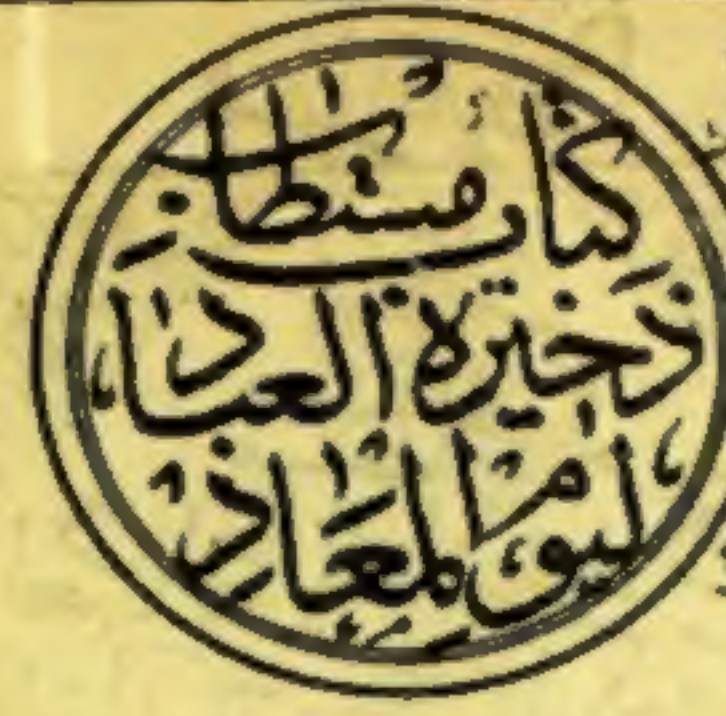 کتاب مستطاب
ذخیرة العباد
لیوم المعاد